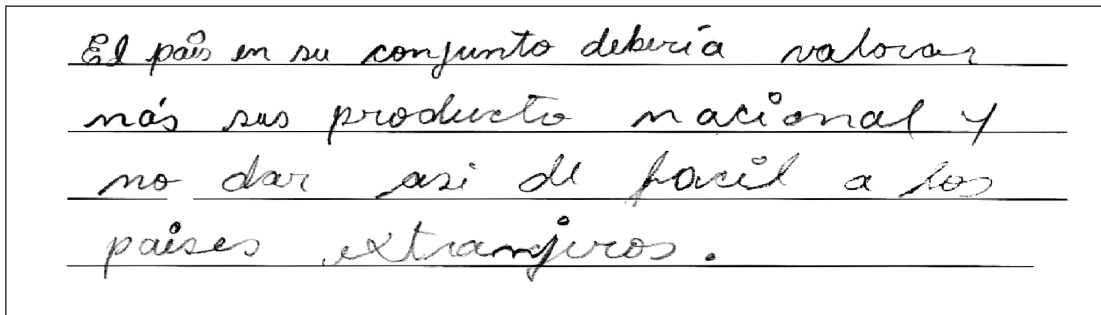 El país en su conjunto debería valorar
más sus producto nacional y
no dar asi de facil a los
paises extranjeros.